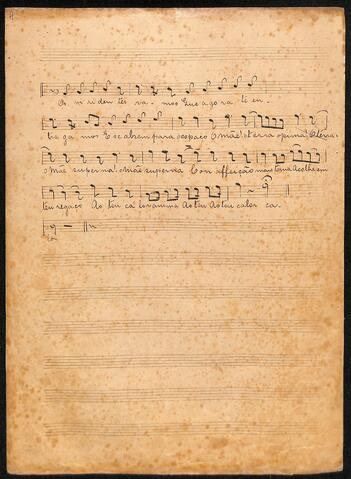 Os viriden tes ra - mos Que a go ra te en
tre ga mos E se abrem para o espaço O Mãe! Terra opima! Eterna
O Mãe superna! O Mãe superna Com affeição mais Acolhe em
teu regaço Ao teu ca lor anima Ao teu Ao teu calor ca
lor